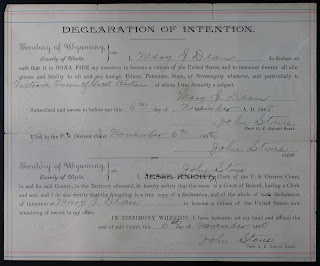 DECLARATION OF INTENTION.
Territory of Wyoming,
County of
I, Mary J. Dean do declare on
oath that it is BONA FIDE my intention to become a citizen of the United States, and to renounce forever all alle-
giance and fidelity to all and any foreign Prince, Potentate, State, or Sovereignty whatever, and particularly to
Victoria Queen of Great Britain of whom I was formerly a subject.
Mary J. Dean
Subscribed and sworn to before me this 6th day of November A. D. 188
John Stone
Clerk U. S. District Court.
Filed by the U. S. District Court, November 6th 188
John Stone
CLERK.
Territory of Wyoming,
County of
John Stone
I, JESSE KNIGHT, Clerk of the U. S. District Court,
in and for said County, in the Territory aforesaid, do hereby certify that the same is a Court of Record, having a Clerk
and seal, and I do also certify that the foregoing is a true copy of a declaration, and of the whole of such declaration
of intention of Mary J. Dean to become a citizen of the United States, now
remaining of record in my office.
IN TESTIMONY WHEREOF, I have hereunto set my hand and affixed the
seal of said Court, this 6th day of November 188
John Stone
Clerk U. S. District Court.